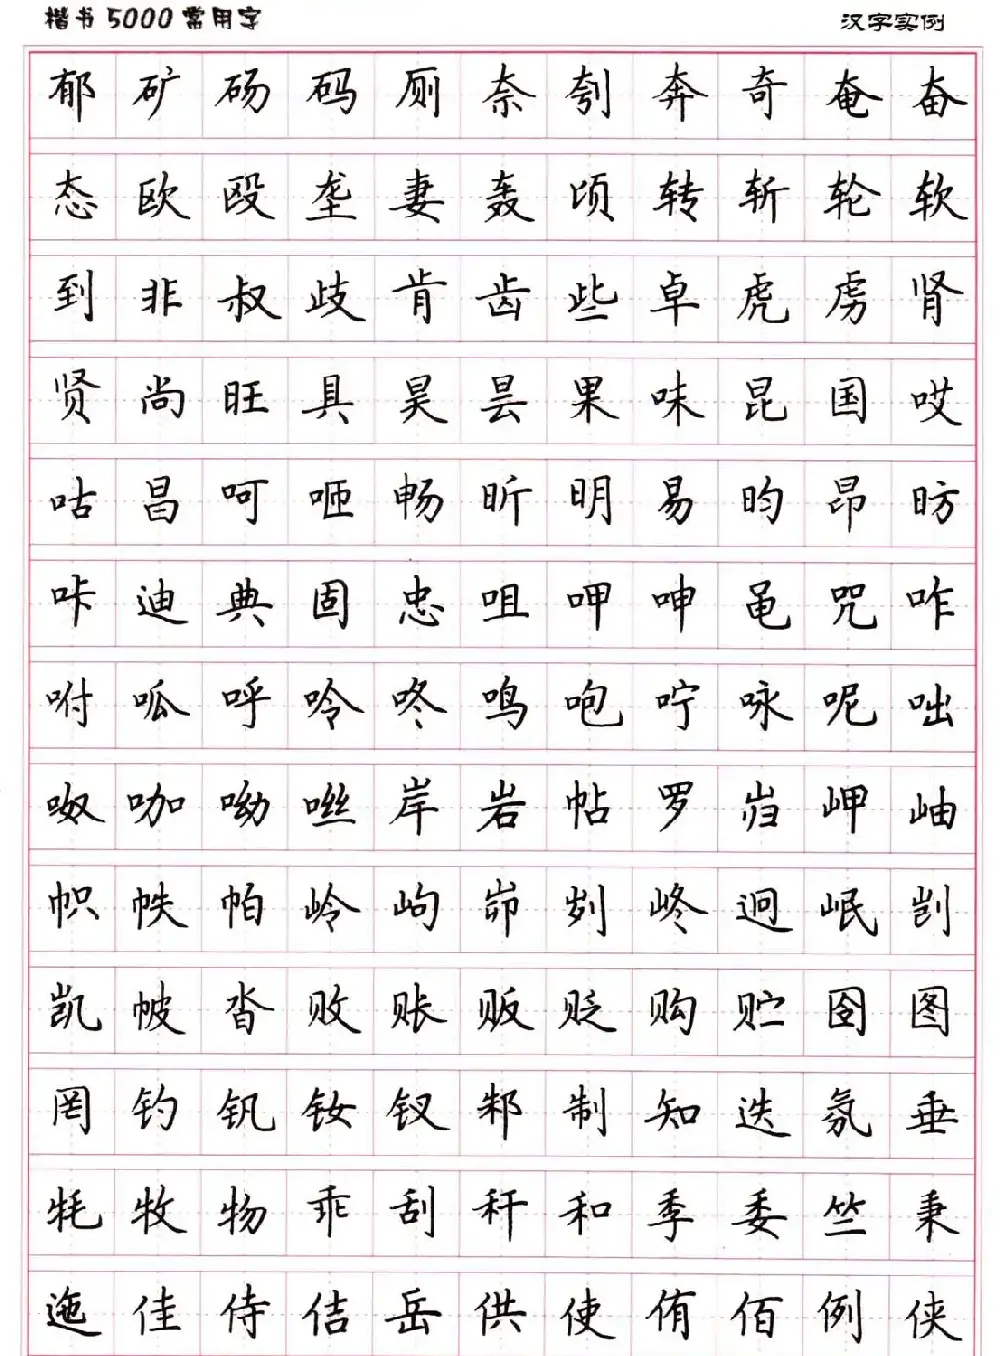 楷书5000常用字 汉字实例
郁矿砀码厕奈刳奔奇奄奋
态欧殴垄妻轰顷转斩轮软
到非叔歧肯齿些卓虎虏肾
贤尚旺具昊昙果味昆国哎
咕昌呵咂畅昕明易昀昂昉
咔迪典固忠咀呷呻黾咒咋
咐呱呼呤咚鸣咆咛咏呢咄
呶咖呦咝岸岩帖罗岿岬岫
帜帙帕岭岣峁刿峂迥岷剀
凯帔沓败账贩贬购贮囹图
罔钓钒钕钗邾制知迭氛垂
牦牧物乖刮秆和季委竺秉
迤佳侍佶岳供使侑佰例侠